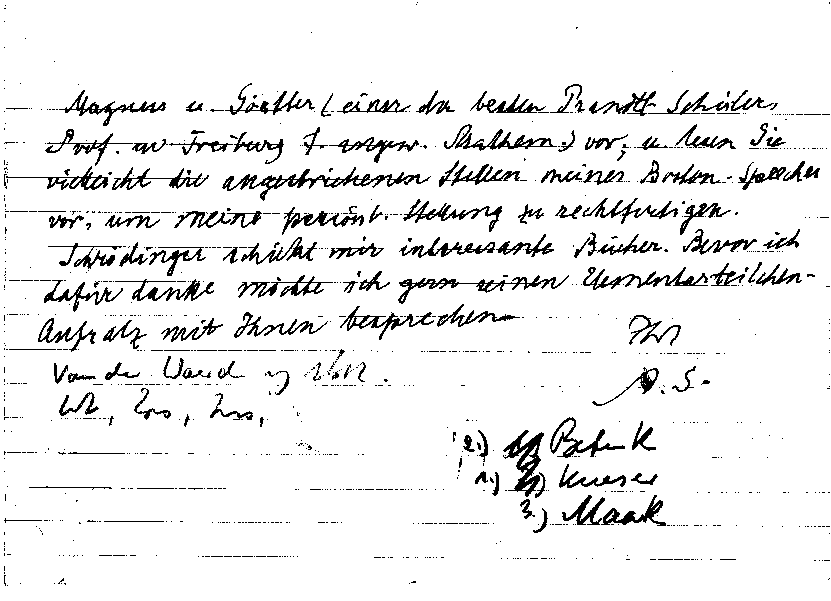 Magnus u. Görtler (einer der besten Prandtl-Schüler,
Prof. in Freiburg f. angew. Mathem.) vor; u. lesen Sie
vielleicht die angestrichenen Stellen meiner Boston-Speeches
vor, um meine persönl. Stellung zu rechtfertigen.
Schrödinger schickt mir interessante Bücher. Bevor ich
dafür danke möchte ich gern seinen Elementarteilchen-
Aufsatz mit Ihnen besprechen
Ihr
A. S.
Van der Waerd
2.) Behnk
1.) Kneser
3.) Maak